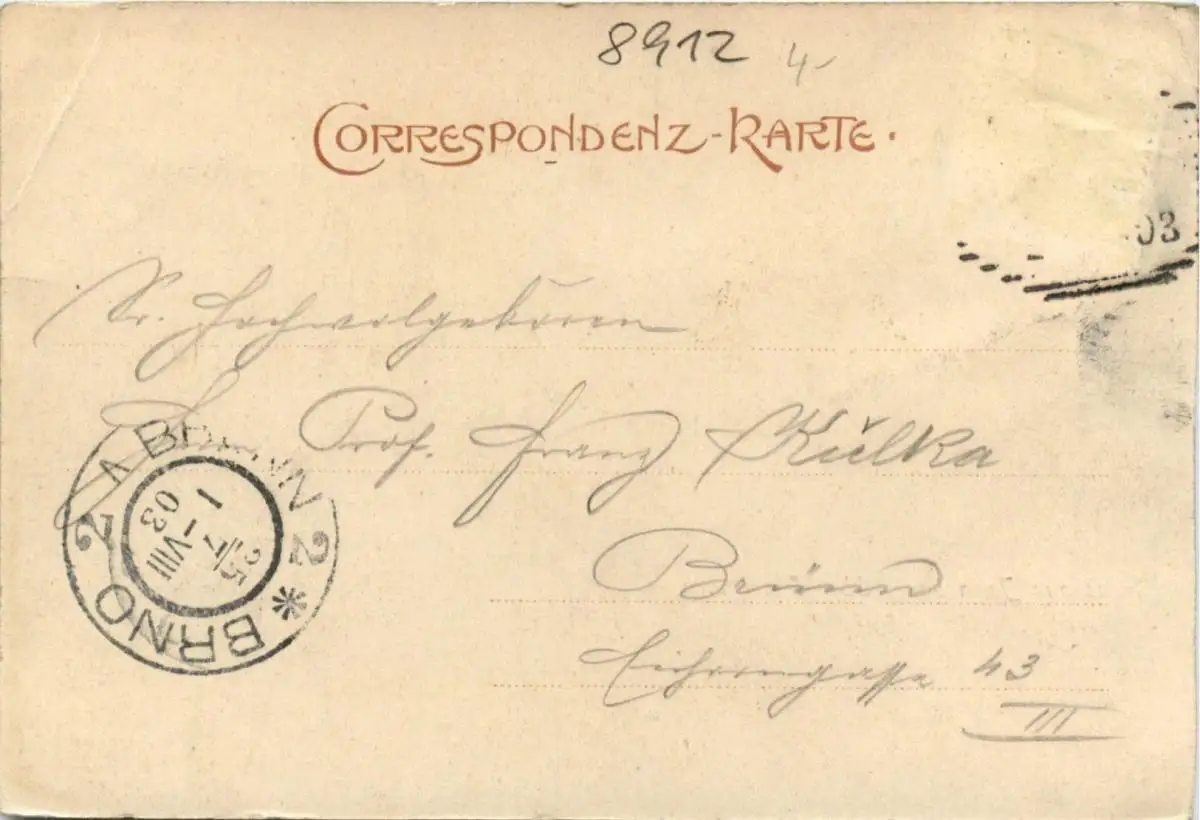 8912 4,-
CORRESPONDENZ-KARTE.
03
Sr. Hochwolgeboren
Herrn Prof. Franz Kulka
Brünn
43
III
BRÜNN 2
2 BRNO
25/7 VIII
03
1